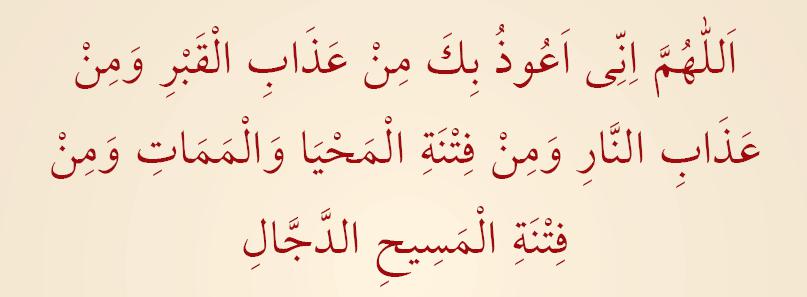 اَللّٰهُمَّ اِنِّى اَعُوذُ بِكَ مِنْ عَذَابِ الْقَبْرِ وَمِنْ
عَذَابِ النَّارِ وَمِنْ فِتْنَةِ الْمَحْيَا وَالْمَمَاتِ وَمِنْ
فِتْنَةِ الْمَسِيحِ الدَّجَّالِ